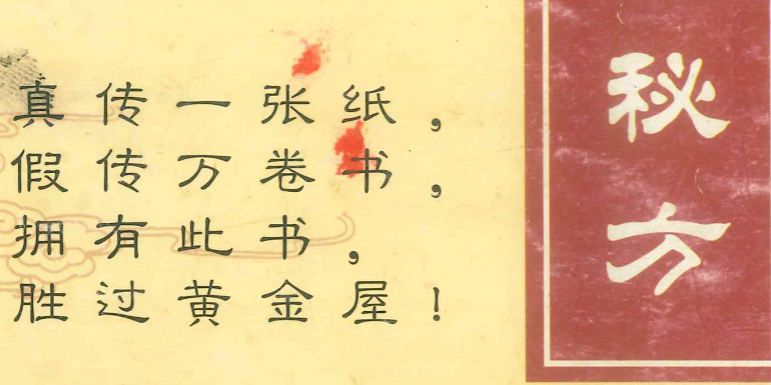 真传一张纸，
假传万卷书，
拥有此书，
胜过黄金屋！
秘方